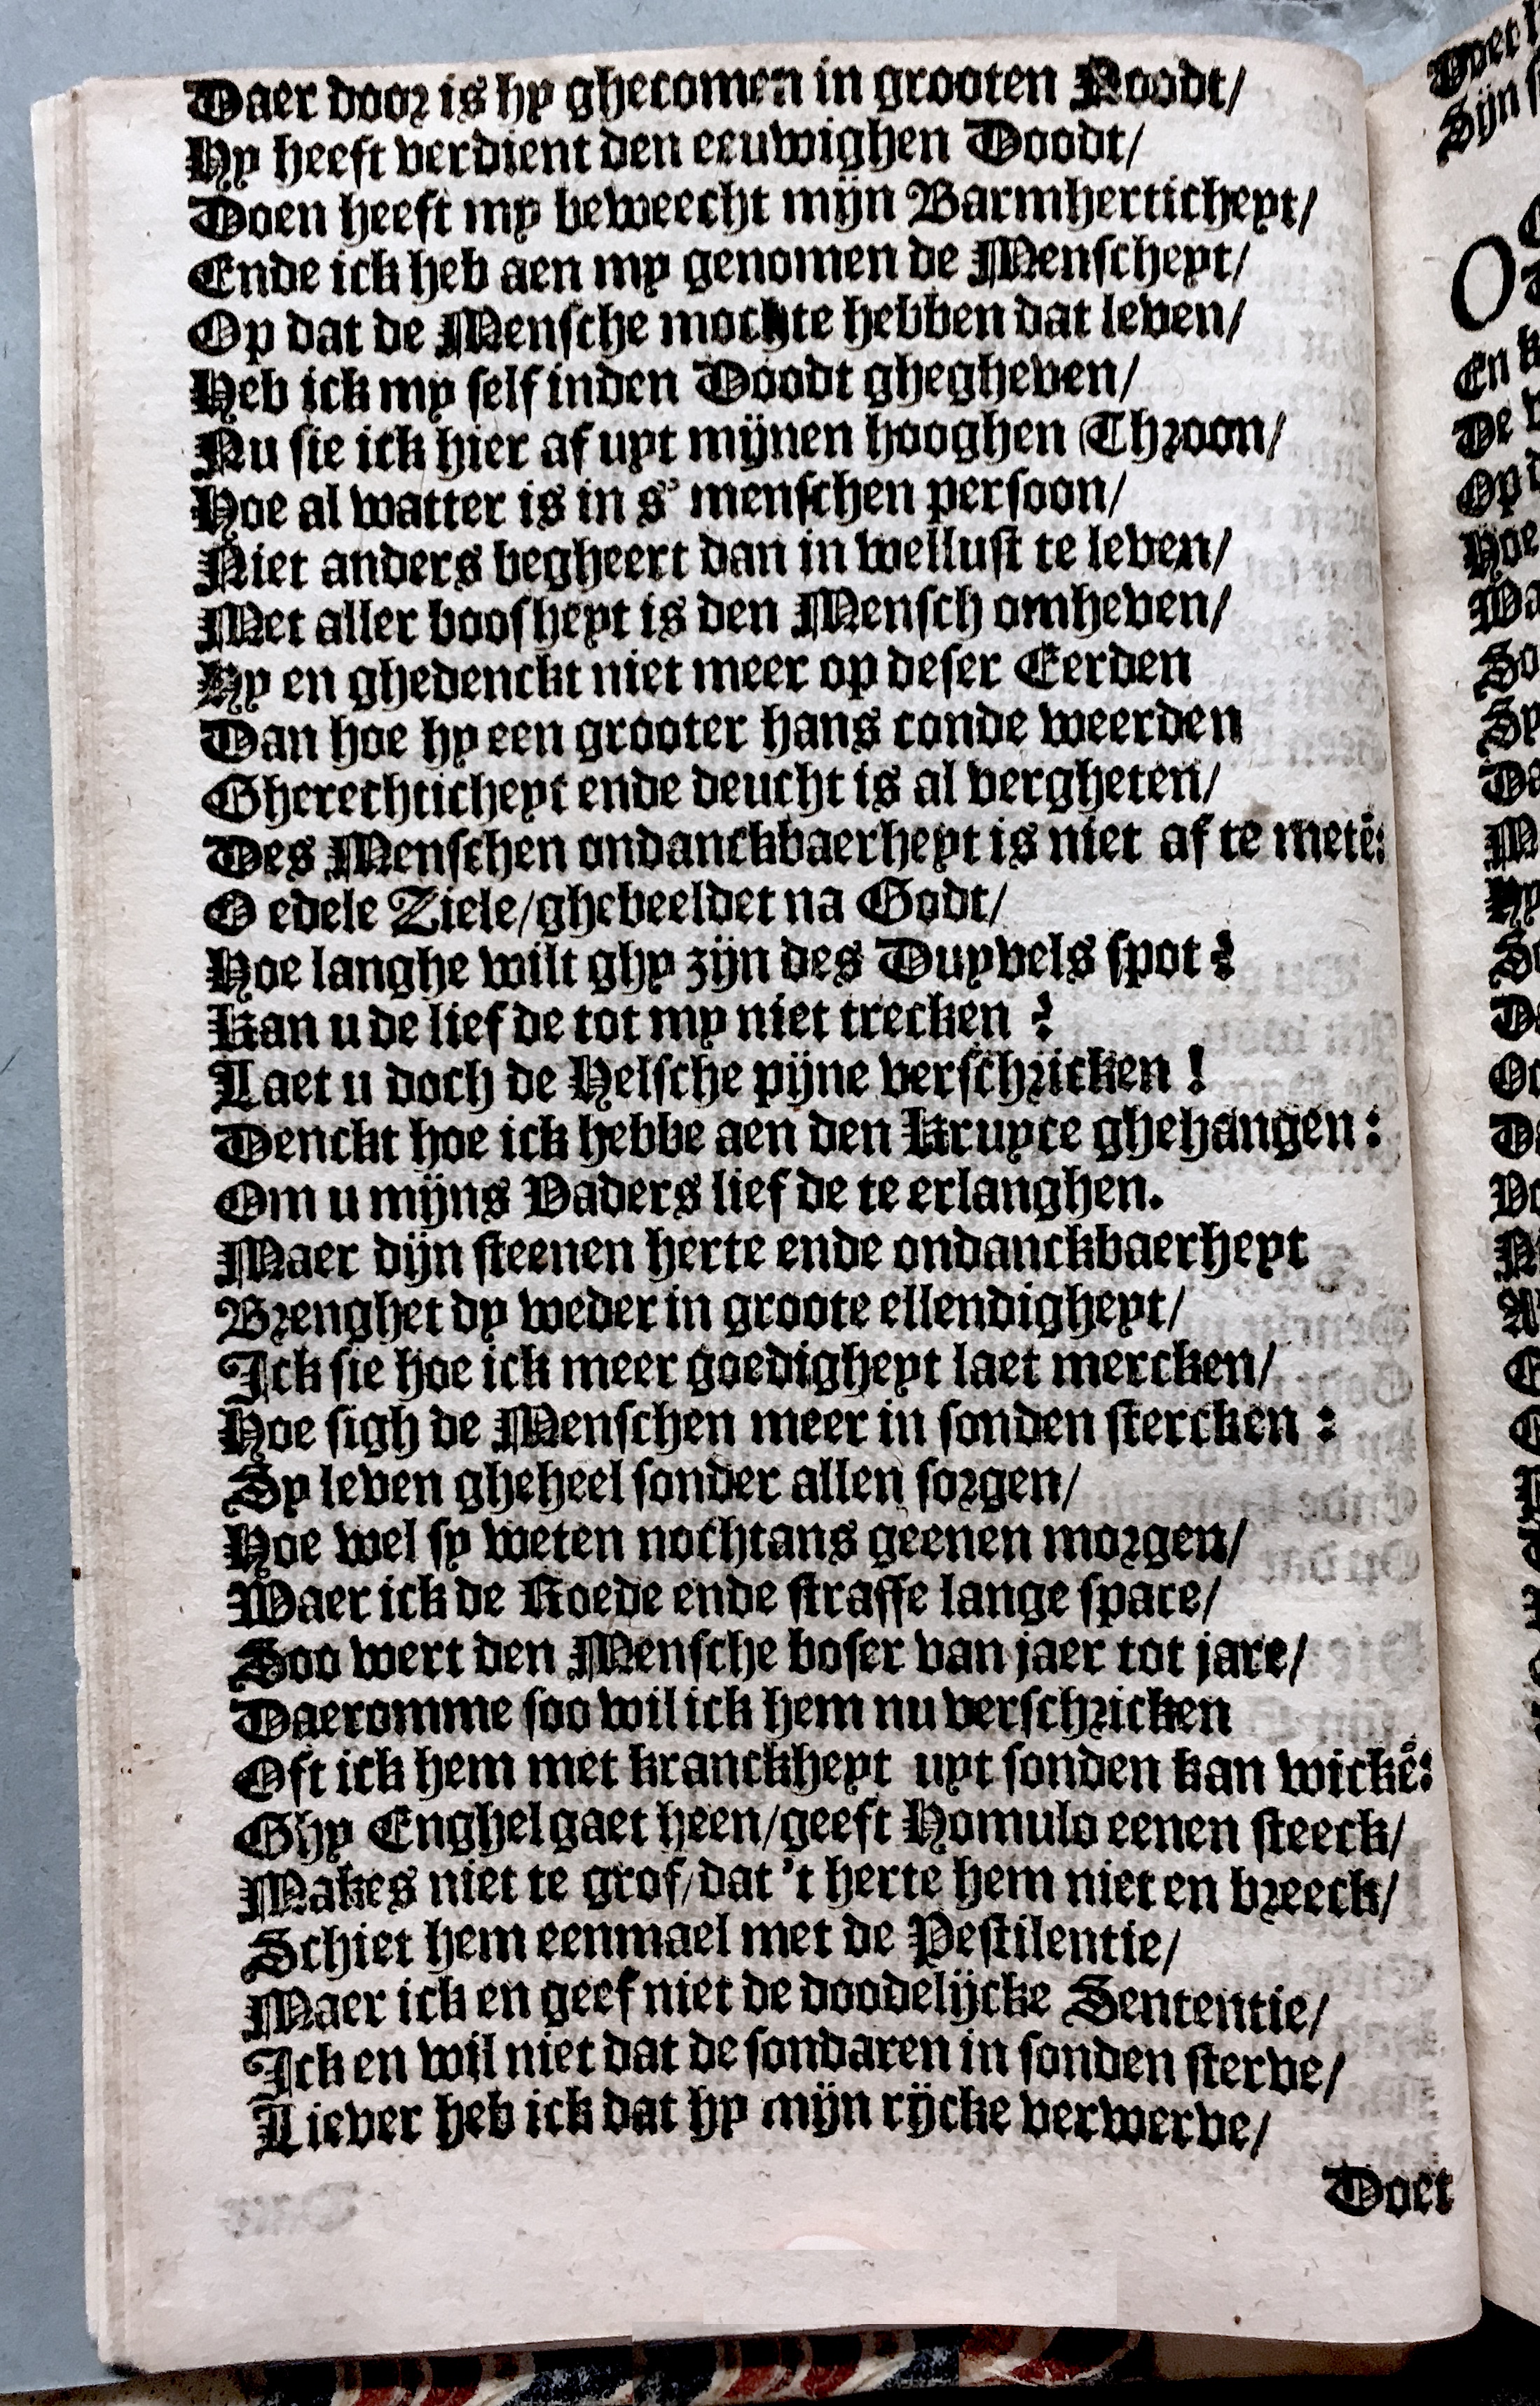 Daer door is hy ghecomen in grooten Noodt/
Hy heeft verdient den eeuwighen Doodt/
Doen heeft my beweecht mijn Barmherticheyt/
Ende ick heb aen my genomen de Menscheyt/
Op dat de Mensche mochte hebben dat leven/
Heb ick my self inden Doodt ghegheven/
Nu sie ick hier af uyt mijnen hooghen Throon/
Hoe al watter is in s' menschen persoon/
Niet anders begheert dan in wellust te leven/
Met aller boosheyt is den Mensch omheven/
Hy en ghedenckt niet meer op deser Eerden
Dan hoe hy een grooter hans conde weerden
Gherechticheyt ende deucht is al vergheten/
Des Menschen ondanckbaerheyt is niet af te metē:
O edele Ziele/ghebeeldet na Godt/
Hoe langhe wilt ghy zijn des Duyvels spot?
Kan u de liefde tot my niet trecken?
Laet u doch de Helsche pijne verschricken!
Denckt hoe ick hebbe aen den Kruyce ghehangen:
Om u mijns Vaders liefde te erlanghen.
Maer dijn steenen herte ende ondanckbaerheyt
Brenghet dy weder in groote ellendigheyt/
Ick sie hoe ick meer goedigheyt laet mercken/
Hoe sigh de Menschen meer in sonden stercken:
Sy leven gheheel sonder allen sorgen/
Hoe wel sy weten nochtans geenen morgen/
Waer ick de Roede ende straffe lange spare/
Soo wert den Mensche boser van jaer tot jare/
Daeromme soo wil ick hem nu verschricken
Oft ick hem met kranckheyt uyt sonden kan wickē:
Ghy Enghel gaet heen/geeft Homulo eenen steeck/
Makes niet te grof/dat 't herte hem niet en breeck/
Schiet hem eenmael met de Pestilentie/
Maer ick en geef niet de doodelijcke Sententie/
Ick en wil niet dat de sondaren in sonden sterve/
Liever heb ick dat hy mijn rijcke verwerve/
Doet